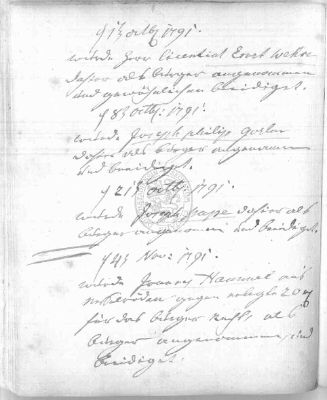 § 13 octb 1791.
wurde Herr Licentiat Ernst
dahier als Bürger angenommen
und gewöhnlichen beeidiget.
§ 83 octb: 1791.
wurde Joseph Philip
dahier als Bürger angenommen
und beeidiget.
§ 213 octb: 1791.
wurde Joseph dahier als
Bürger angenommen und beeidiget.
§ 43 Nov: 1791.
wurde Joannes Hammel aus
gegen erlegte 20
für das Bürger Recht als
Bürger angenommen, und
beeidiget.